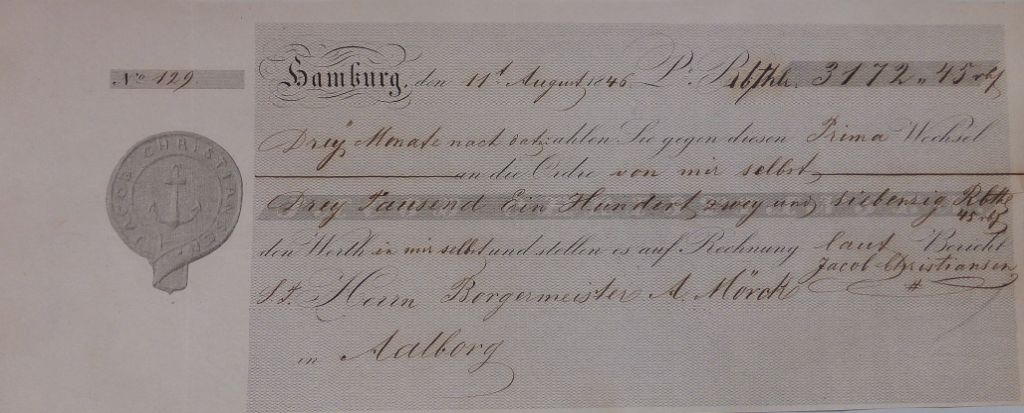 No 129.
JACOB CHRISTIANSEN
Hamburg, den 11t August 1846. Pr. Rbthlr. 3172 „ 45 rbß
Drey Monate nach dato zahlen Sie gegen diesen Prima Wechsel
an die Ordre von mir selbst
Drey Tausend Ein Hundert zwey und siebenzig Rbthl
45 rbß
den Werth in mir selbst und stellen es auf Rechnung laut Bericht
Jacob Christiansen
Herrn Borgermeister A. Mörck
in Aalborg